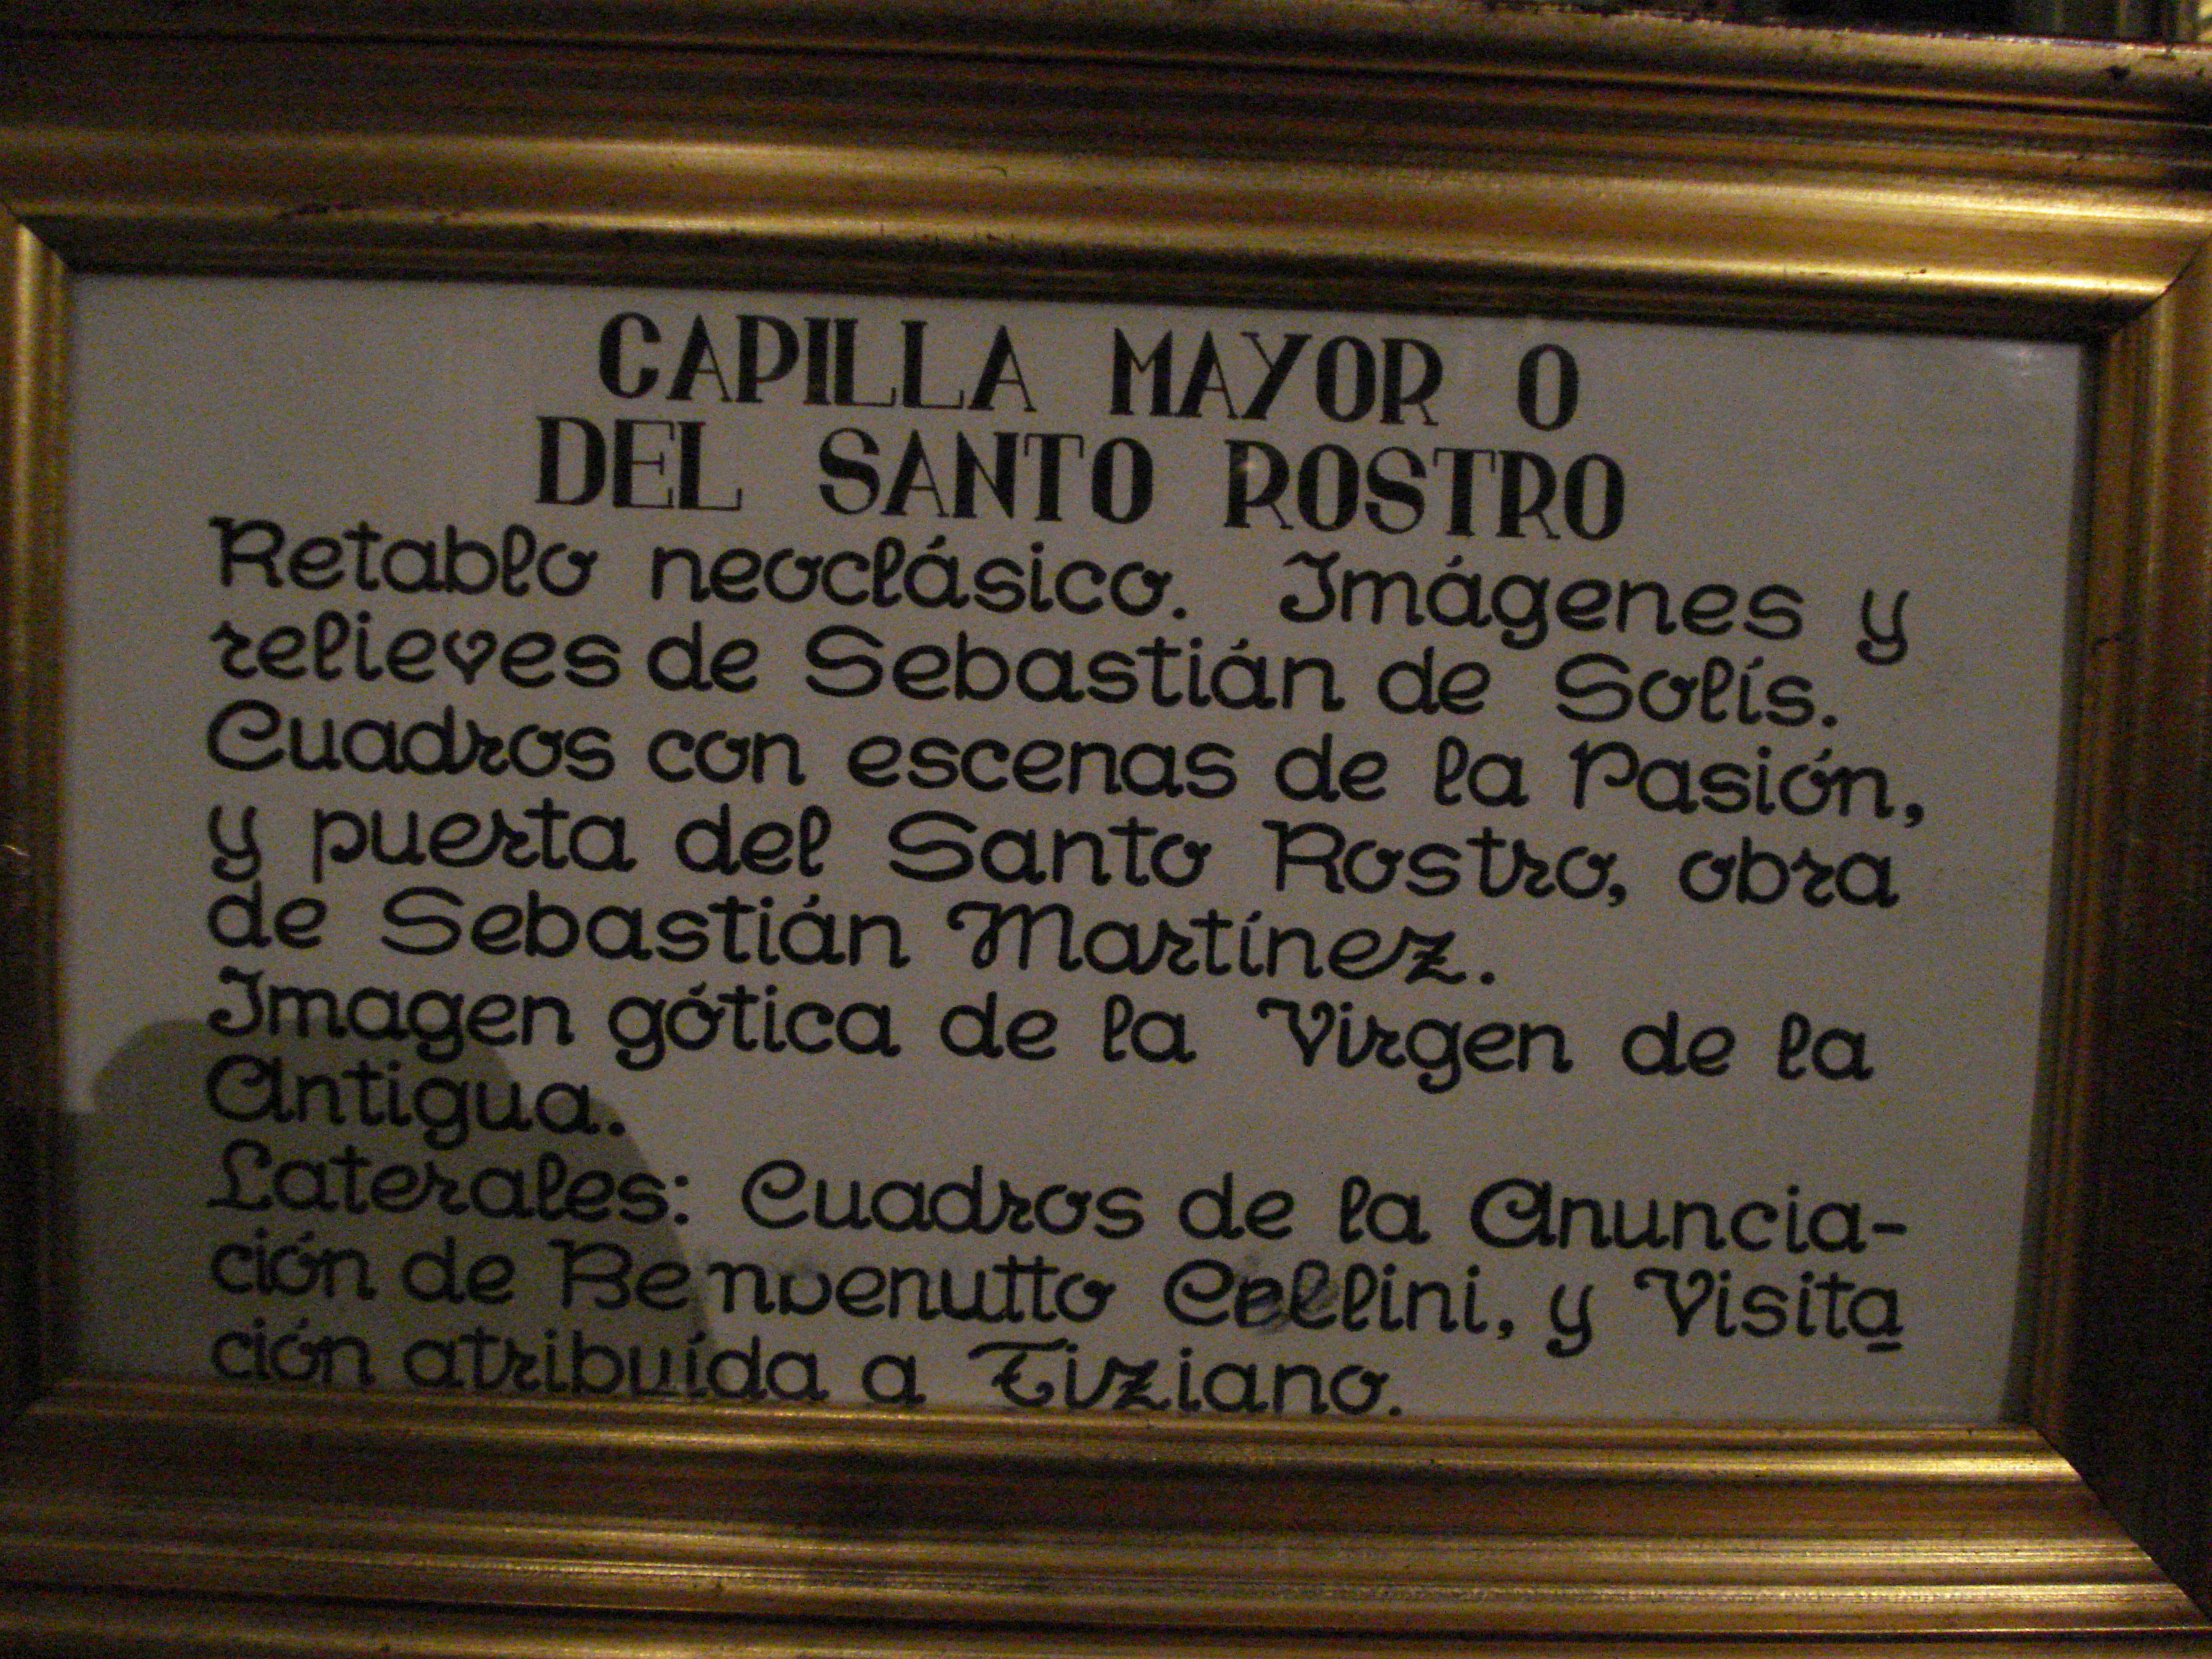 CAPILLA MAYOR O
DEL SANTO ROSTRO
Retablo neoclásico. Imágenes y
relieves de Sebastián de Solís.
Cuadros con escenas de la Pasión,
y puerta del Santo Rostro, obra
de Sebastián Martínez.
Imagen gótica de la Virgen de la
Antigua.
Laterales: Cuadros de la Anuncia-
ción de Benvenutto Cellini, y Visita
ción atribuída a Tiziano.